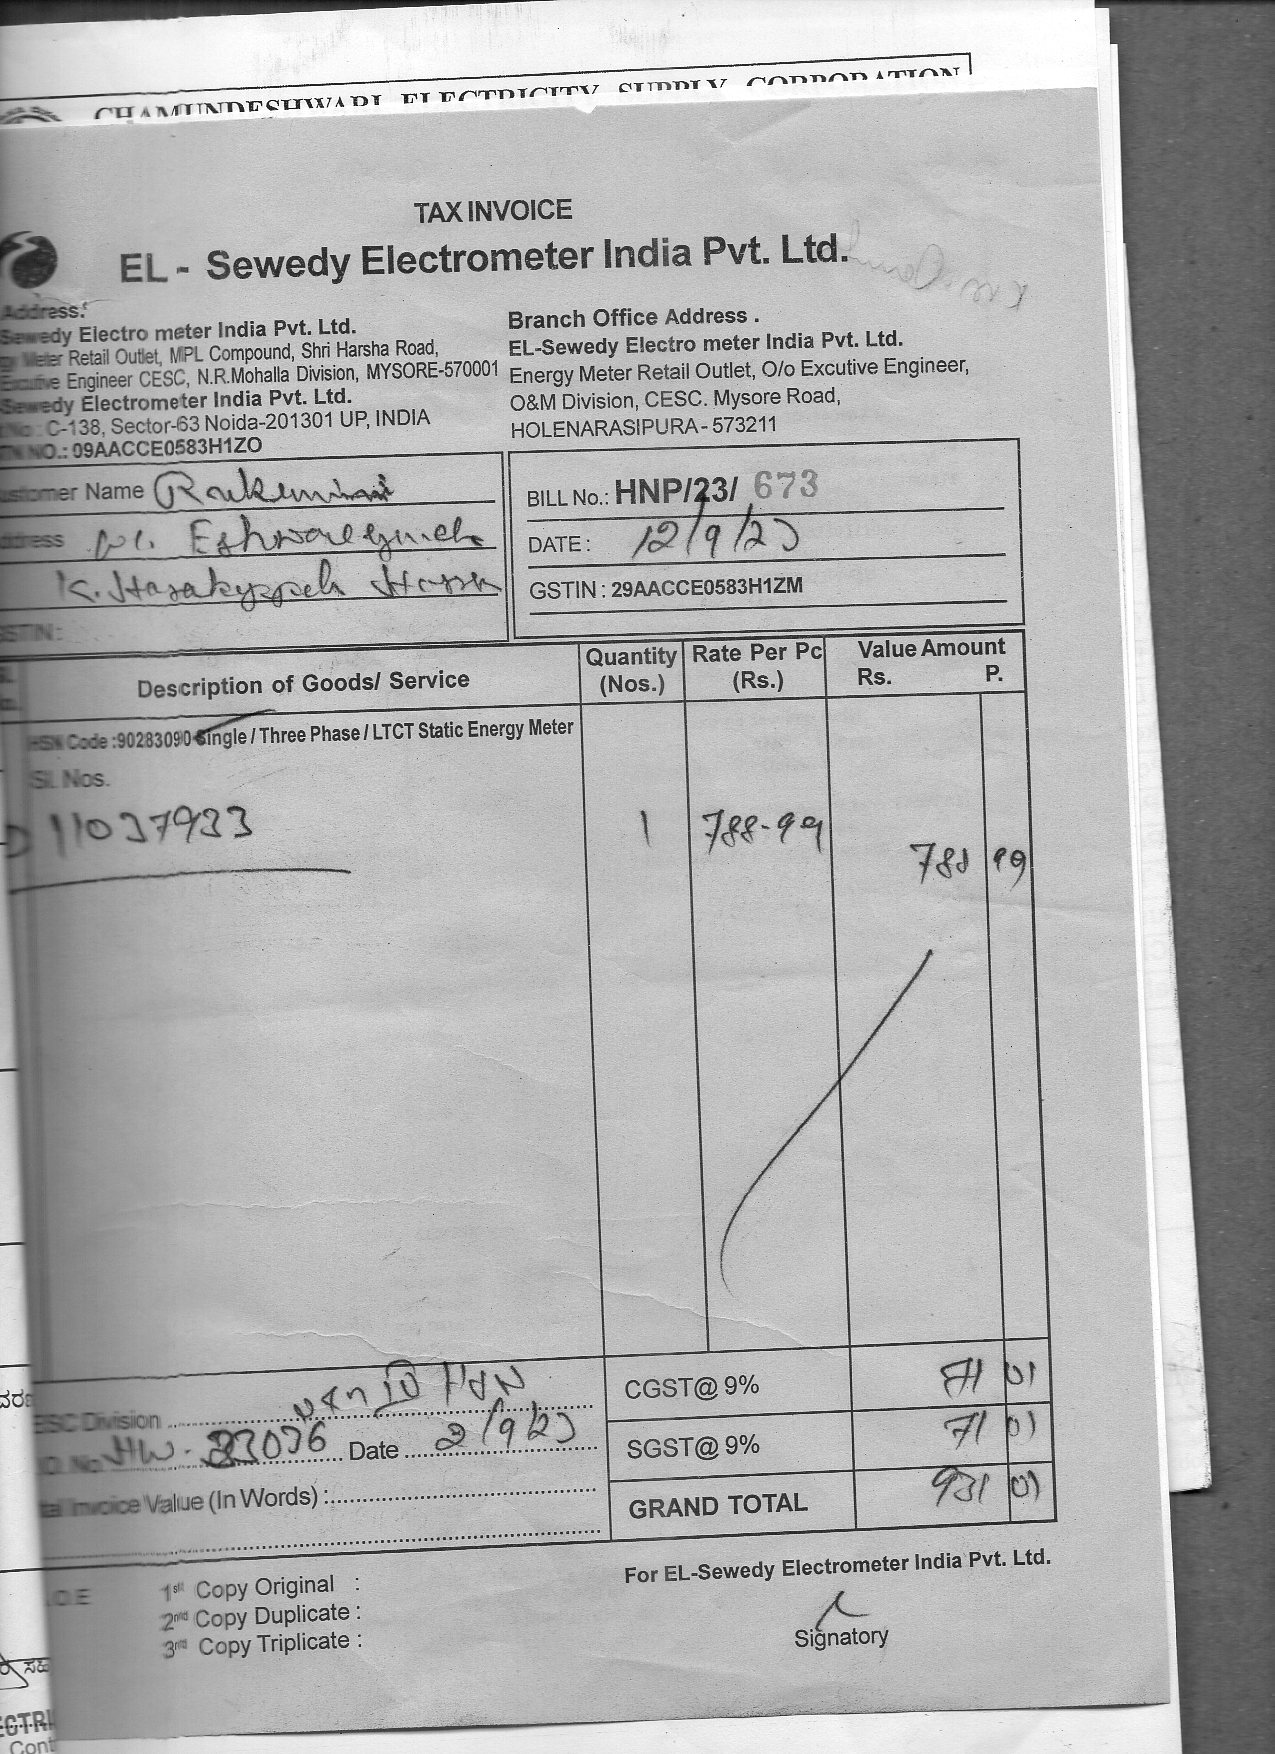 CHAMUNDESHWARI ELECTRICITY SUPPLY CORPORATION
TAX INVOICE
EL - Sewedy Electrometer India Pvt. Ltd.
Address:
Sewedy Electro meter India Pvt. Ltd.
Meter Retail Outlet, MPL Compound, Shri Harsha Road,
Excutive Engineer CESC, N.R.Mohalla Division, MYSORE-570001
Sewedy Electrometer India Pvt. Ltd.
C-138, Sector-63 Noida-201301 UP, INDIA
NO.: 09AACCE0583H1ZO
Branch Office Address .
EL-Sewedy Electro meter India Pvt. Ltd.
Energy Meter Retail Outlet, O/o Excutive Engineer,
O&M Division, CESC. Mysore Road,
HOLENARASIPURA - 573211
Customer Name
Address
GSTIN :
BILL No.: HNP/23/ 673
DATE : 12/9/23
GSTIN : 29AACCE0583H1ZM
Description of Goods/ Service
Quantity (Nos.)
Rate Per Pc (Rs.)
Value Amount
Rs. P.
HSN Code :90283090 Single / Three Phase / LTCT Static Energy Meter
Sl. Nos.
11037933 1 788-99 788 99
CGST@ 9% 71 01
SGST@ 9% 71 01
GRAND TOTAL 931 01
Division
No. HW- 23036 Date 2/9/23
Invoice Value (In Words) :
1st Copy Original :
2nd Copy Duplicate :
3rd Copy Triplicate :
For EL-Sewedy Electrometer India Pvt. Ltd.
Signatory